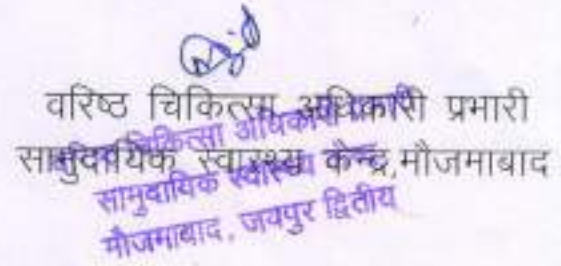 वरिष्ठ चिकित्सा अधिकारी प्रभारी
सामुदायिक स्वास्थ्य केन्द्र,मौजमाबाद
चिकित्सा अधिकारी प्रभारी
सामुदायिक स्वास्थ्य केन्द्र
मौजमाबाद, जयपुर द्वितीय